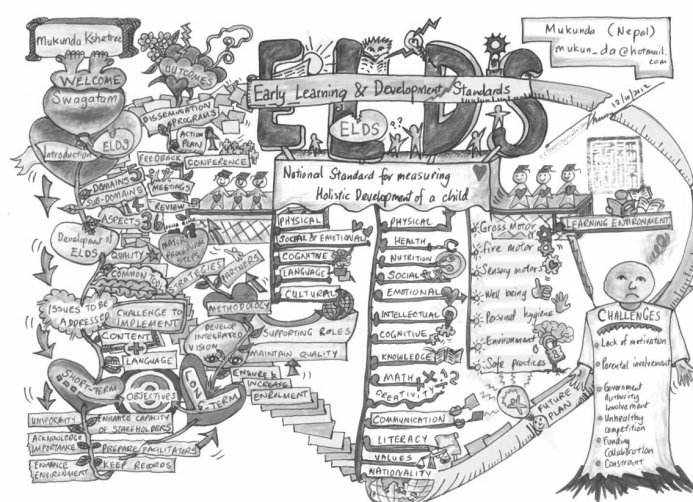 Mukunda Kshetree
WELCOME
Swagatam
Introduction
ELDS
OUTCOMES
DISSEMINATION
PROGRAMS
ACTION
PLAN
FEEDBACK
CONFERENCE
DOMAINS
SUB-DOMAINS
14
ASPECTS 36
MEETINGS
REVIEW
Development of
ELDs
QUALITY
COMMON
MAJOR
STRATEGIES
PARTNERS
METHODOLOGY
ISSUES TO BE
ADDRESSED
CHALLENGE TO
IMPLEMENT
CONTENT
LANGUAGE
DEVELOP
INTEGRATED
VISION
SUPPORTING ROLES
MAINTAIN QUALITY
ENSURE &
INCREASE
ENROLMENT
SHORT-TERM
OBJECTIVES
LONG-TERM
UNIFORMITY
ACKNOWLEDGE
IMPORTANCE
ENHANCE
ENVIRONMENT
ENHANCE CAPACITY
OF STAKEHOLDERS
PREPARE FACILITATORS
KEEP RECORDS
ELDS
Early Learning & Development Standards
ELDS
??
National Standard for measuring
Holistic Development of a child
PHYSICAL
SOCIAL & EMOTIONAL
COGNITIVE
LANGUAGE
CULTURAL
PHYSICAL
HEALTH
NUTRITION
SOCIAL
EMOTIONAL
INTELLECTUAL
COGNITIVE
KNOWLEDGE
MATH
CREATIVITY
COMMUNICATION
LITERACY
VALUES
NATIONALITY
Gross motor
fire motor
Sensory motors
Well being
Personal hygiene
Environment
Safe practices
FUTURE
PLAN
Mukunda (Nepal)
mukun_da@hotmail.
com
12/10/2012
LEARNING ENVIRONMENT
CHALLENGES
Lack of motivation
Parental involvement
Government
Authority
Involvement
Unhealthy
competition
Funding
Collaboration
Constraint